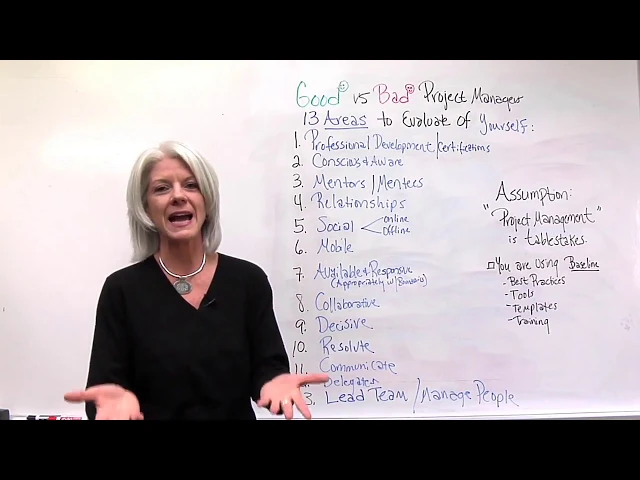 Good vs Bad Project Managers
13 Areas to Evaluate of Yourself:
1. Professional Development/Certifications
2. Conscious & Aware
3. Mentors/Mentees
4. Relationships
5. Social < online
Offline
6. Mobile
7. Available & Responsive
(Appropriately w/Boundaries)
8. Collaborative
9. Decisive
10. Resolute
11. Communicate
Delegates
3. Lead Team/Manage People
Assumption:
"Project Management"
is tablestakes.
You are using Baseline
- Best Practices
- Tools
- Templates
- Training